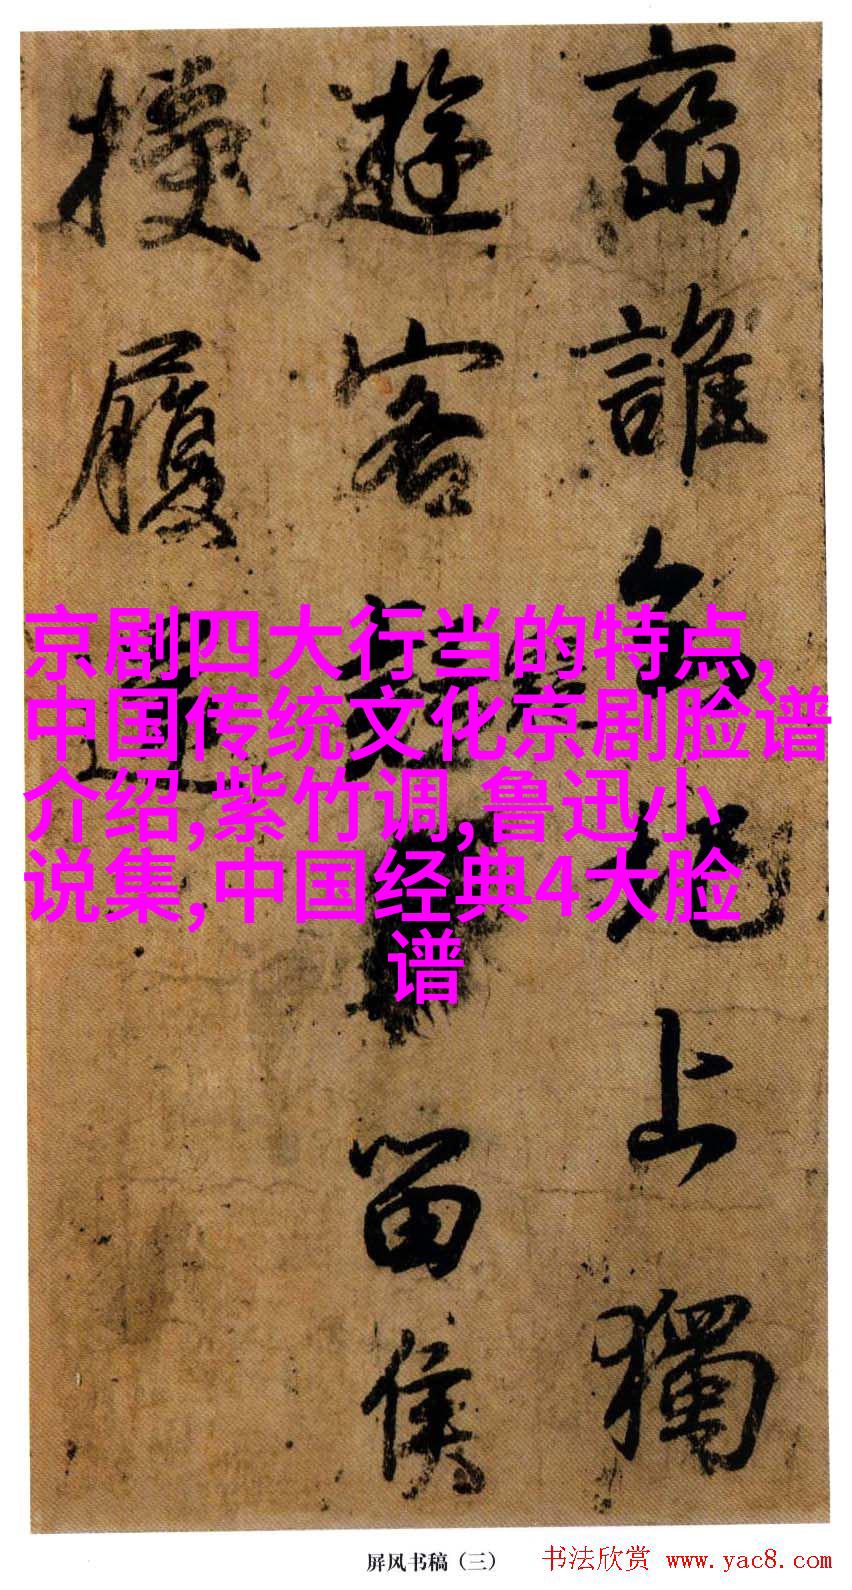 誰
上獨
遊客
留侯
履
京剧四大行当的特点,
中国传统文化京剧脸谱
介绍,紫竹调,鲁迅小
说集,中国经典4大脸
谱
屏风书稿（三）
书法欣赏 www.yac8.com